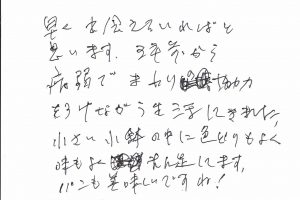 早く出会えていればと
思います。3年前から
病弱でまわり協力
をうけながら生きてきました。
小さい小鉢の中に色どりもよく
味もよく満足してます。
パンも美味しいですね!